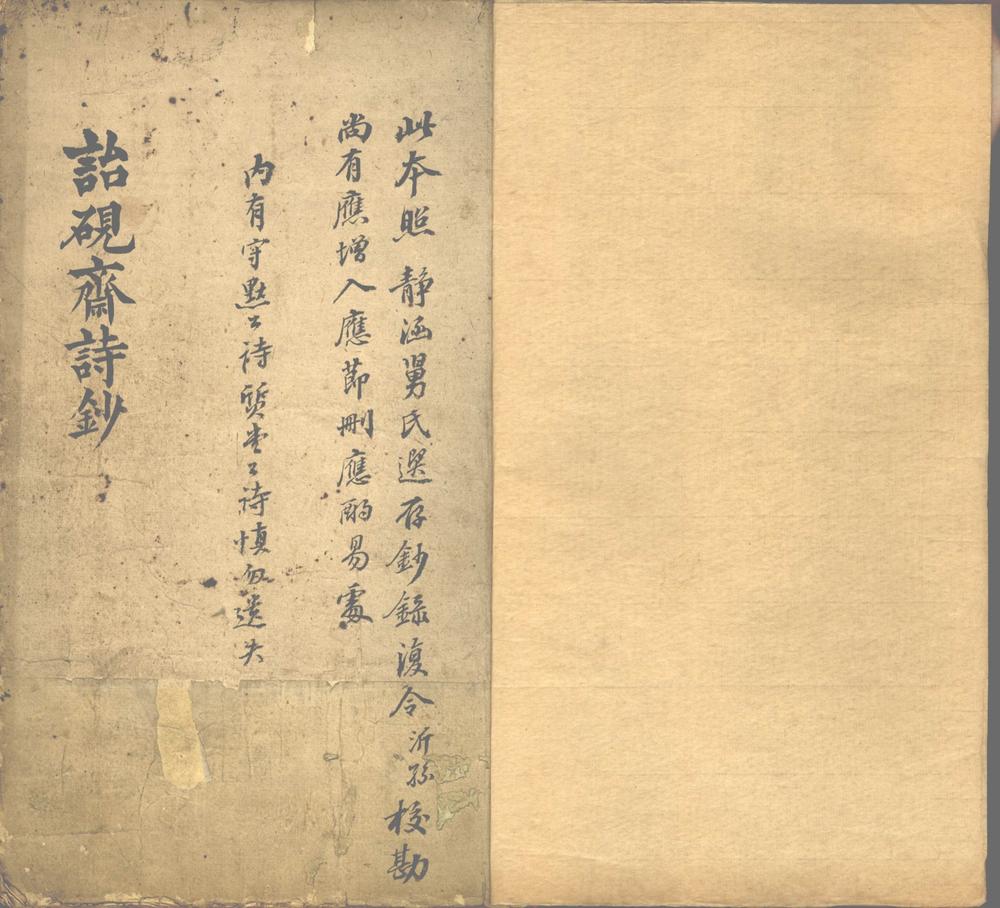 此本照 靜涵舅氏選存鈔錄復令沂孫校勘
尚有應增入應節刪應酌易處
内有守默公詩質堂公詩慎勿遺失
詒硯齋詩鈔